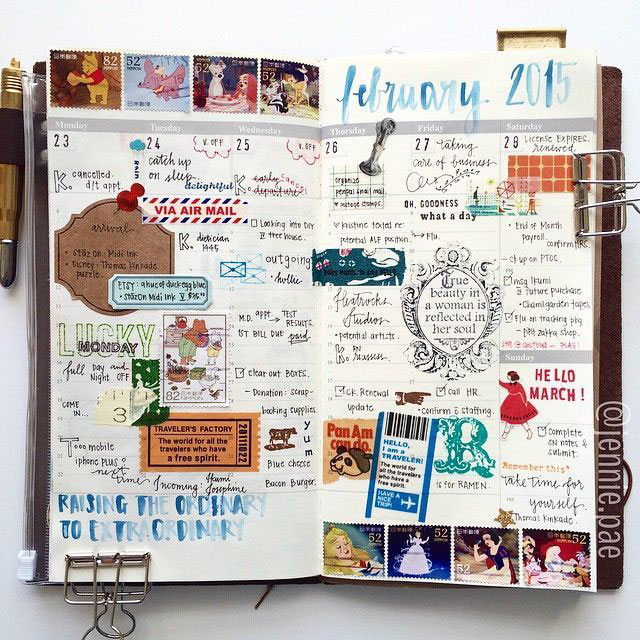 日本郵便
82
NIPPON
52
NIPPON
52
NIPPON
52
NIPPON
Monday
Tuesday
Wednesday
23
24
25
RAIN
catch up
on sleep.
V. OFF
delightful
K. cancelled
d/t appt.
K. early cancel
departure
VIA AIR MAIL
arrival
• StazOn Midi Ink
• Disney-Thomas Kinkade
puzzle.
ETSY: a hue of duck egg blue
• StazOn Midi Ink
K. dietician
1445
Looking into DIY
tree house.
outgoing
• hollie
LUCKY
MONDAY
full Day and
Night OFF
82
日本郵便
M.D. appt → TEST
RESULTS.
1ST BILL DUE paid.
clear out BOXES.
- Donation: scrap-
booking supplies
COME
IN...
3
TRAVELER'S FACTORY
The world for all the
travelers who have
a free spirit.
yum
Blue cheese
Bacon Burger
Too mobile
iphone PLUS?
next
time
Incoming:
Josephine
RAISING THE ORDINARY
TO EXTRAORDINARY
february 2015
Thursday
Friday
Saturday
26
27
28
V. OFF
taking
care of business
LICENSE EXPIRES.
renewed.
organize
penpal snail mail.
+ postage stamps.
OH, GOODNESS
what a day
Kristine texted re:
potential ALF position.
→ Flu.
• End of Month
payroll
confirm HRS.
✓ up on PTOC.
fleatrocks
Studios
potential artists.
True
beauty in
a woman is
reflected in
her soul
msg Ikumi
future purchase
• Chamil garden tapes.
Flu on tracking pkg
pink zakka shop.
K. RN
reassess.
CK. Renewal
update
call HR.
• confirm & staffing.
Sunday
HELLO
MARCH!
Complete
on notes &
submit.
Pan Am
can do.
HELLO,
I am a
TRAVELER!
The world for all the
travelers who have
a free spirit.
HAVE A
NICE
TRIP!
R
is for RAMEN.
Remember this*
take time for
yourself.
Thomas Kinkade.
日本郵便
52
NIPPON
52
NIPPON
52
NIPPON
52
NIPPON
@jemme.pae